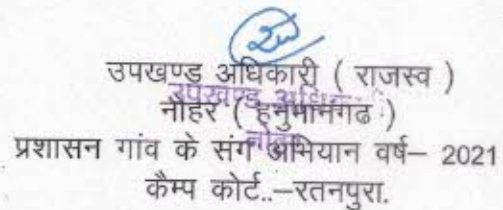 उपखण्ड अधिकारी ( राजस्व )
नोहर ( हनुमानगढ )
प्रशासन गांव के संग अभियान वर्ष– 2021
कैम्प कोर्ट..–रतनपुरा.